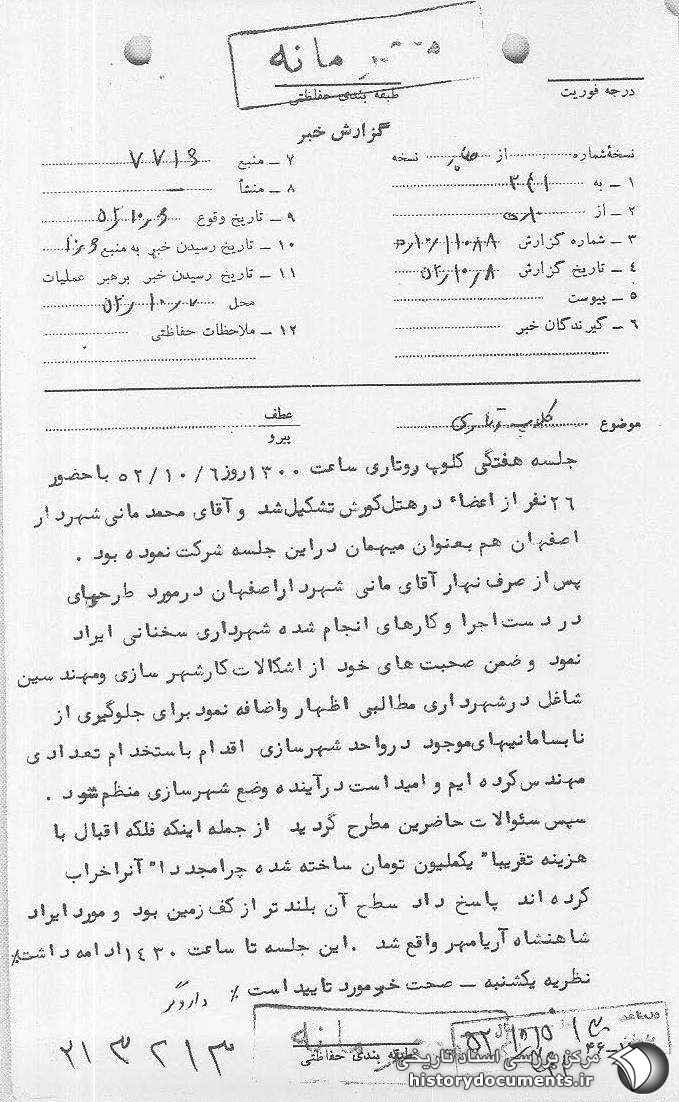 محرمانه
طبقه بندی حفاظتی
درجه فوریت
گزارش خبر
نسخهٔ شماره از نسخه
۱ – به ۳۴۱
۲ – از
۳ – شماره گزارش
۴ – تاریخ گزارش ۵۲/۱۰/۸
۵ – پیوست
۶ – گیرندگان خبر
۷ – منبع
۸ – منشأ –
۹ – تاریخ وقوع
۱۰ – تاریخ رسیدن خبر به منبع
۱۱ – تاریخ رسیدن خبر برهبر عملیات
محل ۵۲/۱۰/۷
۱۲ – ملاحظات حفاظتی
موضوع کلوپ رتاری
عطف
پیرو
جلسه هفتگی کلوپ روتاری ساعت ۱۳۰۰ روز ۵۲/۱۰/۶ باحضور
۲۶ نفر از اعضاء در هتل کورش تشکیل شد و آقای محمد مانی شهردار
اصفهان هم بعنوان میهمان دراین جلسه شرکت نموده بود .
پس از صرف نهار آقای مانی شهردار اصفهان درمورد طرحهای
در دست اجرا و کارهای انجام شده شهرداری سخنانی ایراد
نمود و ضمن صحبت های خود از اشکالات کار شهر سازی ومهندسین
شاغل درشهرداری مطالبی اظهار واضافه نمود برای جلوگیری از
نابسامانیهای موجود درواحد شهرسازی اقدام باستخدام تعدادی
مهندس کرده ایم و امید است درآینده وضع شهرسازی منظم شود .
سپس سئوالات حاضرین مطرح گردید از جمله اینکه فلکه اقبال با
هزینه تقریبا" یکملیون تومان ساخته شده چرا مجددا" آنرا خراب
کرده اند پاسخ داد سطح آن بلند تر از کف زمین بود و مورد ایراد
شاهنشاه آریامهر واقع شد . این جلسه تا ساعت ۱۴۳۰ ادامه داشت٪
نظریه یکشنبه – صحت خبر مورد تایید است ٪ دادوگر
طبقه بندی حفاظتی
مرکز بررسی اسناد تاریخی
historydocuments.ir